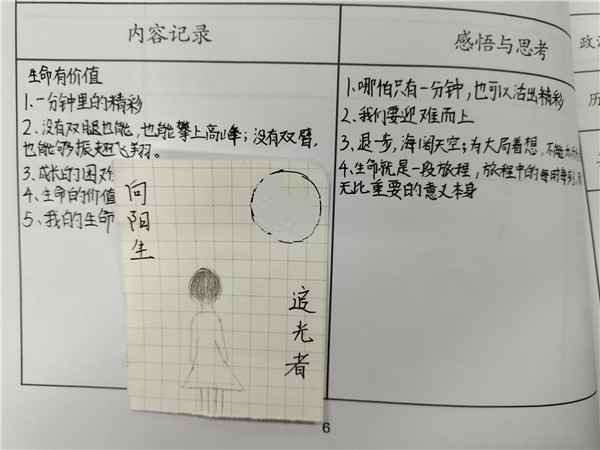 内容记录
感悟与思考
生命有价值
1、一分钟里的精彩
2、没有双腿也能,也能攀上高峰;没有双臂,
也能够振翅飞翔。
3、成长的困
4、生命的价值
5、我的生命
1、哪怕只有一分钟,也可以活出精彩
2、我们要迎难而上
3、退一步,海阔天空;为大局着想,不能
4、生命就是一段旅程,旅程中的每时每刻
无比重要的意义本身
向
阳
生
追
光
者
6